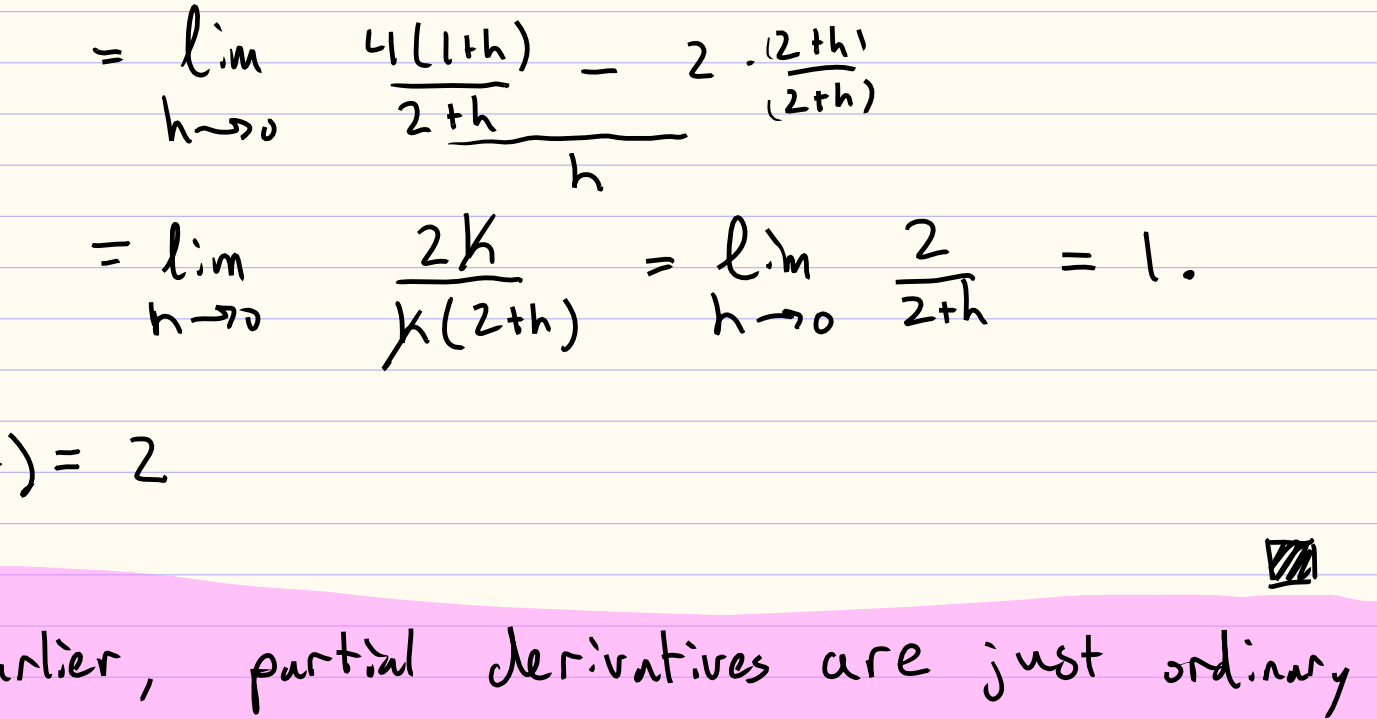 = lim h→0 (4(1+h)/(2+h) − 2 · (2+h)/(2+h)) / h
= lim h→0 2h/(h(2+h)) = lim h→0 2/(2+h) = 1.
) = 2
rlier, partial derivatives are just ordinary